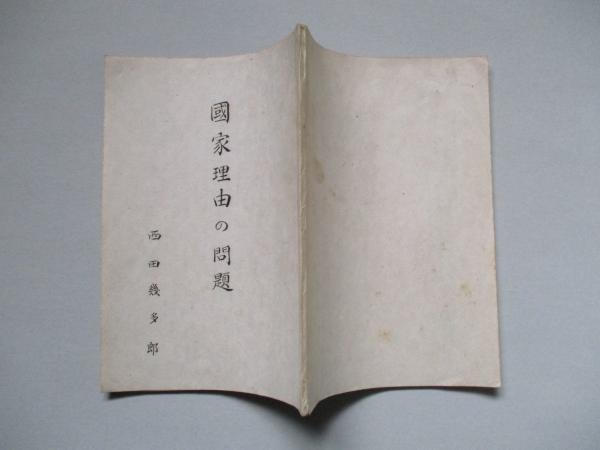 國家理由の問題
西田幾多郎